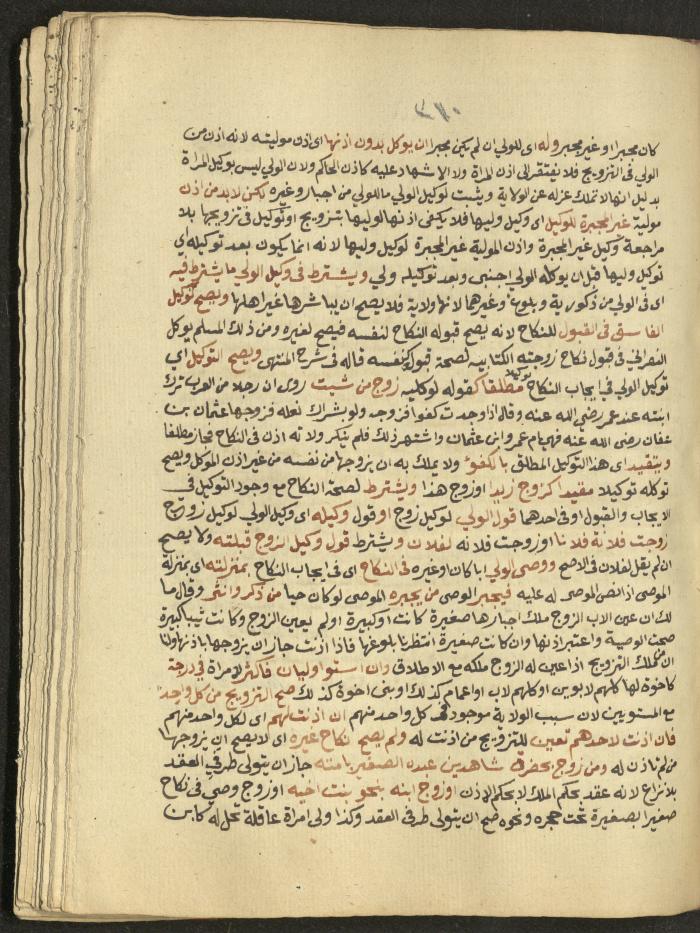 ٣٧٠
كان مجبرا او غير مجبر وله اى للولي ان لم يكن مجبرا ان يوكل بدون اذنها اى اذن موليته لانه اذن من
الولي فى التزويج فلا يفتقر الى اذن المراة ولا الاشهاد عليه كاذن الحاكم ولان الولي ليس بوكيل المراة
بدليل انها لا تملك عزله عن الولاية ويثبت لوكيل الولي ما للولي من اجبار وغيره لكن لا بد من اذن
مولية غير المجبرة للوكيل اى وكيل وليها فلا يكفى اذنها لوليها بتزويج او توكيل فى تزويجها بلا
مراجعة وكيل غير المجبرة واذن المولية غير المجبرة لوكيل وليها لانه انما يكون بعد توكيله اي
توكيل وليها قبل ان يوكله الولي اجنبى وبعد توكيله ولي ويشترط فى وكيل الولي ما يشترط فيه
اى فى الولي من ذكورية وبلوغ وغيرهما لانها ولاية فلا يصح ان يباشرها غير اهلها ويصح توكيل
الفاسق فى القبول للنكاح لانه يصح قبوله النكاح لنفسه فيصح لغيره ومن ذلك المسلم يوكل
النصرانى فى قبول نكاح زوجته الكتابيه لصحة قبوله لنفسه قاله فى شرح المنتهى ويصح التوكيل اي
توكيل الولي فى ايجاب النكاح توكيلا مطلقا كقوله لوكليه زوج من شيت روى ان رجلا من العرب ترك
ابنته عند عمر رضي الله عنه وقال اذا وجدت كفوا فزوجه ولو بشراك نعله فزوجها عثمان بن
عفان رضى الله عنه فهى ام عمرو ابن عثمان واشتهر ذلك فلم ينكر ولانه اذن فى النكاح فجاز مطلقا
ويتقيد اى هذا التوكيل المطلق بالكفؤ ولا يملك به ان يزوجها من نفسه من غير اذن الموكل ويصح
توكله توكيلا مقيدا كزوج زيدا او زوج هذا ويشترط لصحة النكاح مع وجود التوكيل فى
الايجاب والقبول او فى احدهما قول الولي لوكيل زوج او قول وكيله اى وكيل الولي لوكيل زوج
زوجت فلانة فلانا او زوجت فلانه لفلان ويشترط قول وكيل الزوج قبلته ولا يصح
ان لم يقل لفلان فى الاصح ووصى الولي ابا كان او غيره فى النكاح اى فى ايجاب النكاح بمنزلته اى بمنزلة
الموصى اذا نص الموصى له عليه فيجبر الوصى من يجبره الموصى لو كان حيا من ذكر وانثى وقال ما
لك ان عين الاب الزوج ملك اجبارها صغيرة كانت او كبيرة او لم يعين الزوج وكانت ثيبا كبيرة
صحت الوصية واعتبر اذنها وان كانت صغيرة انتظرنا بلوغها فاذا اذنت جاز ان يزوجها باذنها ولنا
ان من ملك التزويج اذا عين له الزوج ملكه مع الاطلاق وان استوا وليان فاكثر لامراة فى درجة
كاخوة لها كلهم لابوين او كلهم لاب او اعمام كذلك او بنى اخوة كذلك صح التزويج من كل واحد
مع المستويين لان سبب الولاية موجود فى كل واحد منهم ان اذنت لهم اى لكل واحد منهم
فان اذنت لاحدهم تعين للتزويج من اذنت له ولم يصح نكاح غيره اى لا يصح ان يزوجها
من لم تاذن له ومن زوج بحضرة شاهدين عبده الصغير بامته جاز ان يتولى طرفي العقد
بلا نزاع لانه عقد بحكم الملك لا بحكم الاذن او زوج ابنه بنحو بنت اخيه او زوج وصي فى نكاح
صغيرا بصغيرة تحت حجره ونحوه صح ان يتولى طرفى العقد وكذا ولى امراة عاقلة تحل له كابن